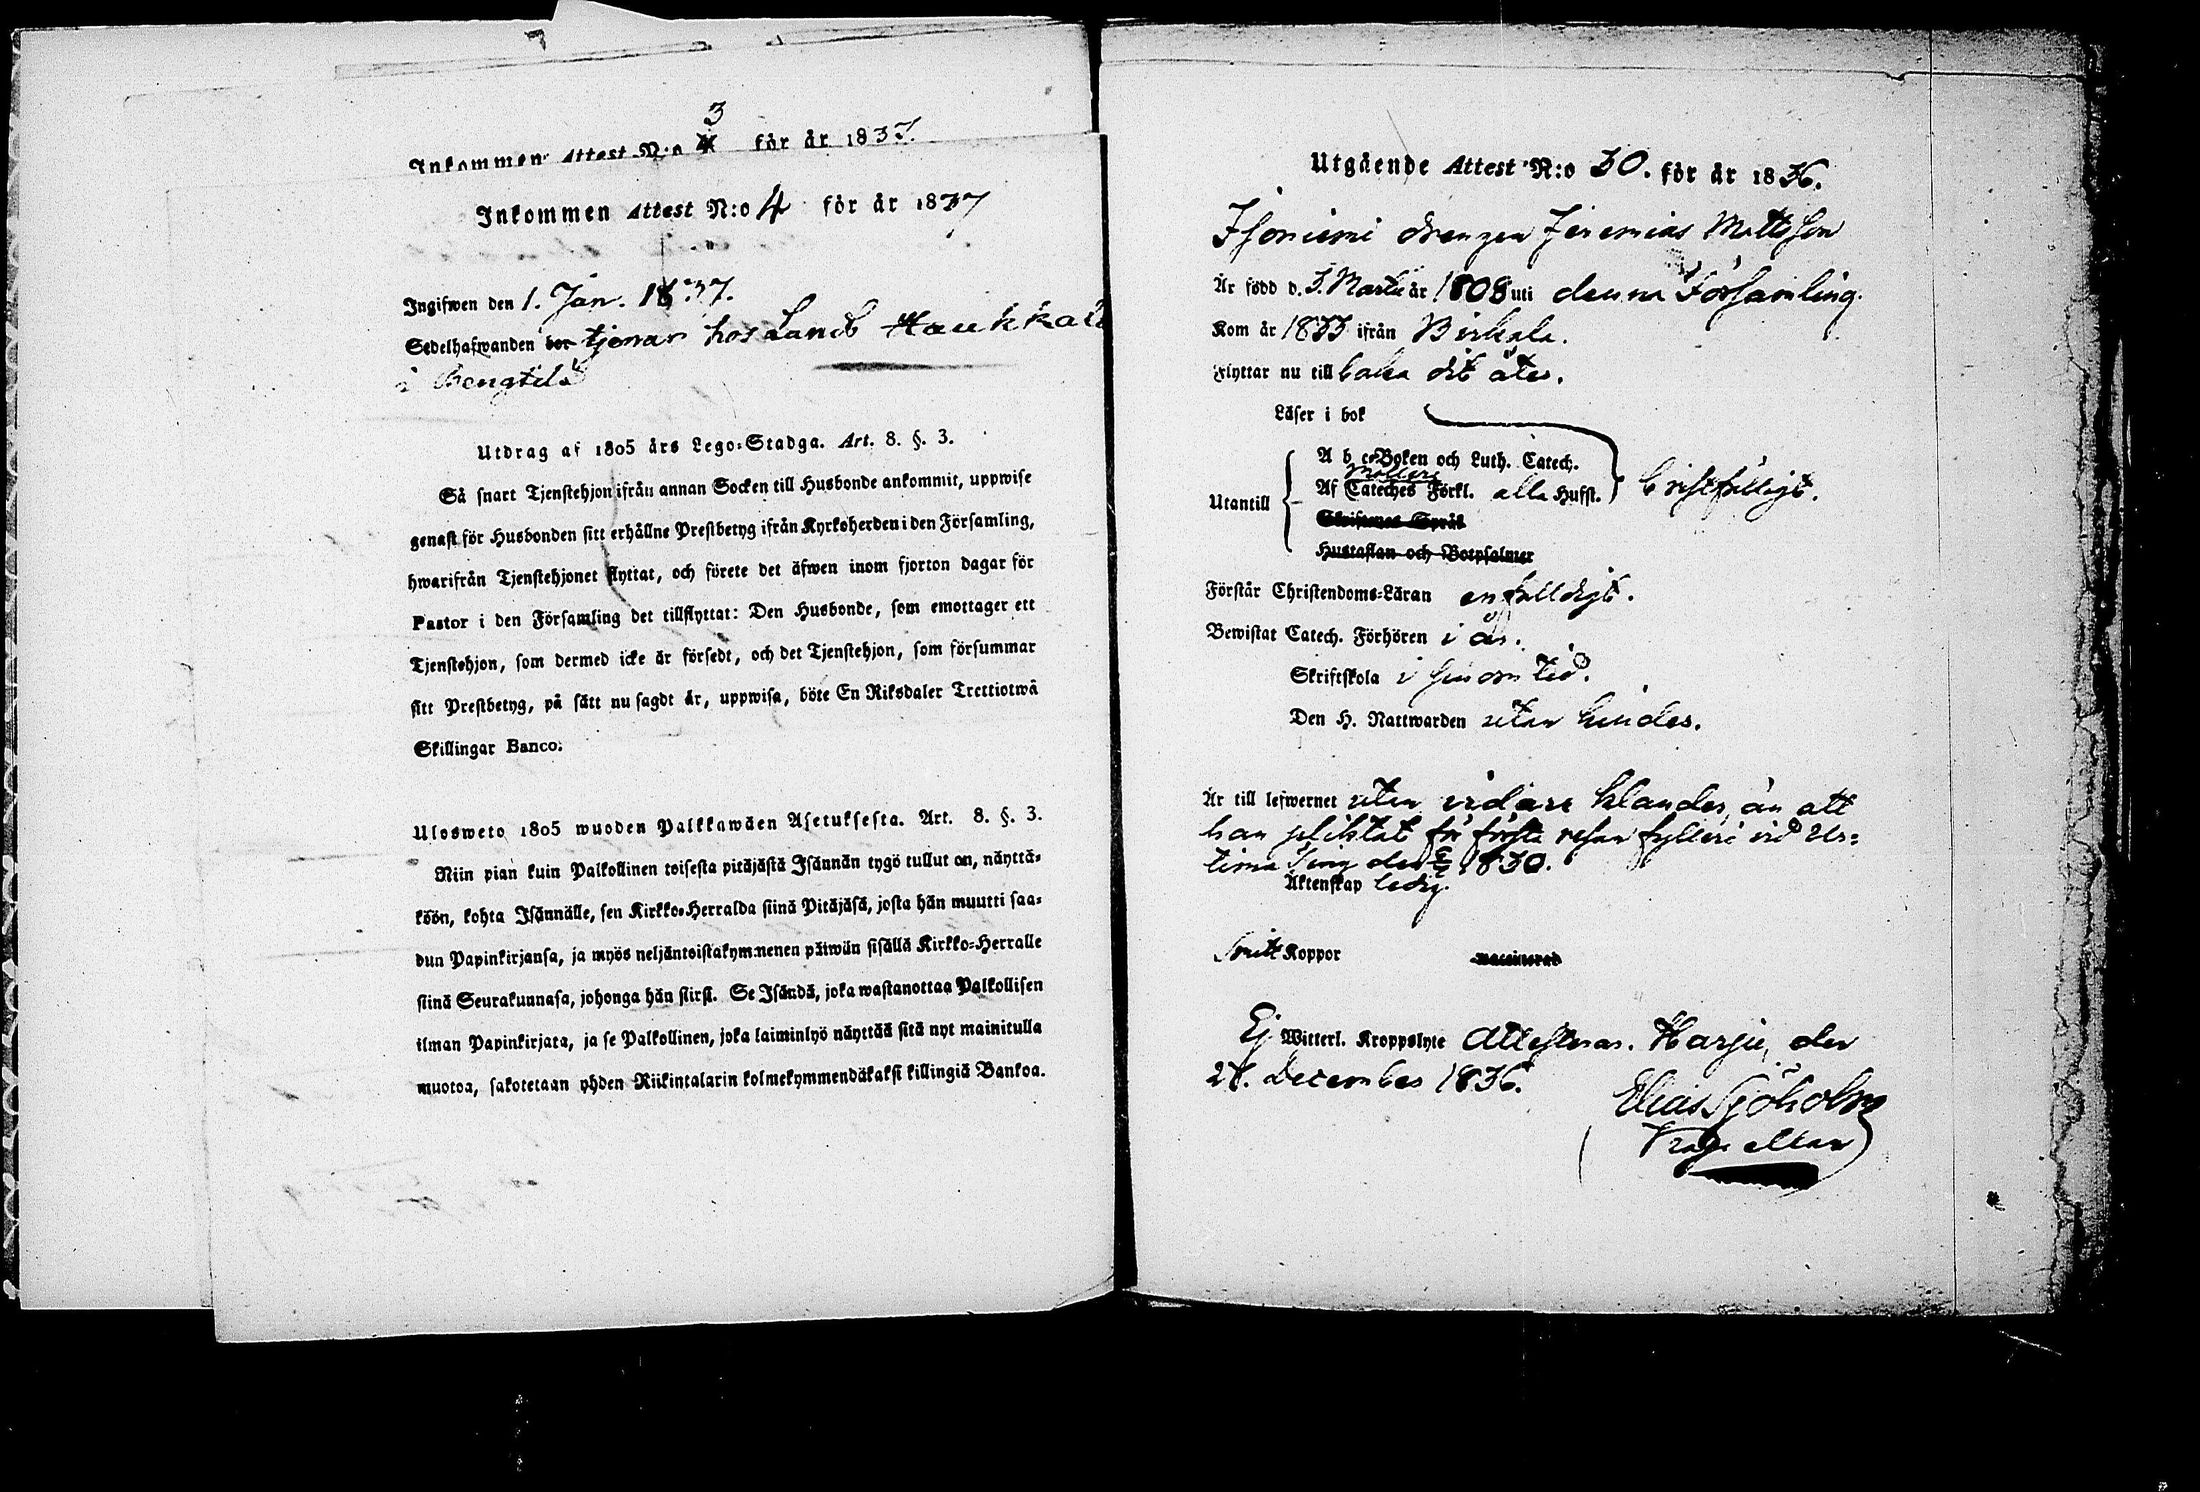 Inkommen Attest N:o 3 för år 1837.
Inkommen Attest N:o 4 för år 1837
Ingifwen den 1. Jan. 1837.
Sedelhafwanden bor tjenar hos Landb Haukka
i Bengtilä
Utdrag af 1805 års Lego-Stadga. Art. 8. §. 3.
Så snart Tjenstehjon ifrån annan Socken till Husbonde ankommit, uppwise
genast för Husbonden sitt erhållne Prestbetyg ifrån Kyrkoherden i den Församling,
hwarifrån Tjenstehjonet flyttat, och förete det äfwen inom fjorton dagar för
Pastor i den Församling det tillflyttat: Den Husbonde, som emottager ett
Tjenstehjon, som dermed icke är försedt, och det Tjenstehjon, som försummar
sitt Prestbetyg, på sätt nu sagdt är, uppwisa, böte En Riksdaler Trettiotwå
Skillingar Banco.
Ulosweto 1805 wuoden Palkkawäen Asetuksesta. Art. 8. §. 3.
Niin pian kuin Palkollinen toisesta pitäjästä Isännän tygö tullut on, näyttä-
köön, kohta Isännälle, sen Kirkko-Herralda siinä Pitäjäsä, josta hän muutti saa-
dun Papinkirjansa, ja myös neljäntoistakymmenen päiwän sisällä Kirkko-Herralle
siinä Seurakunnasa, johonga hän siirsi. Se Isändä, joka wastanottaa Palkollisen
ilman Papinkirjata, ja se Palkollinen, joka laiminlyö näyttää sitä nyt mainitulla
muotoa, sakotetaan yhden Riikintalarin kolmekymmendäkaksi killingiä Bankoa.
Utgående Attest N:o 30. för år 1836.
Isoniemi drengen Jeremias Mattsson
Är född d. 3. Martii år 1808 uti denna Församling.
Kom år 1833 ifrån Birkala.
Flyttar nu till baka dit åter.
Läser i bok
A b c-Boken och Luth. Catech.
Möllers
Utantill Af Cateches Förkl. alla Hufst. bristfälligt.
Skriftenes Språk
Hustaflan och Botpsalmer
Förstår Christendoms-Läran enfaldigt.
Bewistat Catech. Förhören i år.
Skriftskola i sinom tid.
Den H. Nattwarden utan hinder.
Är till lefwernet utan vidare klander, än att
han pliktat för första resan fylleri vid Ur-
tima Ting den 1830.
Äktenskap ledig.
Haft Koppor vaccinerad
Ej Witterl. Kroppslyte Attesteras. Harju, den
28. December 1836.
Elias Sjöholm